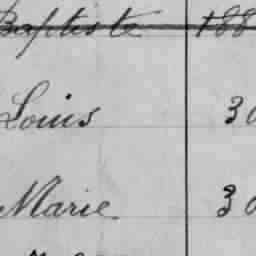 Baptiste 188
Louis 30
Marie 30